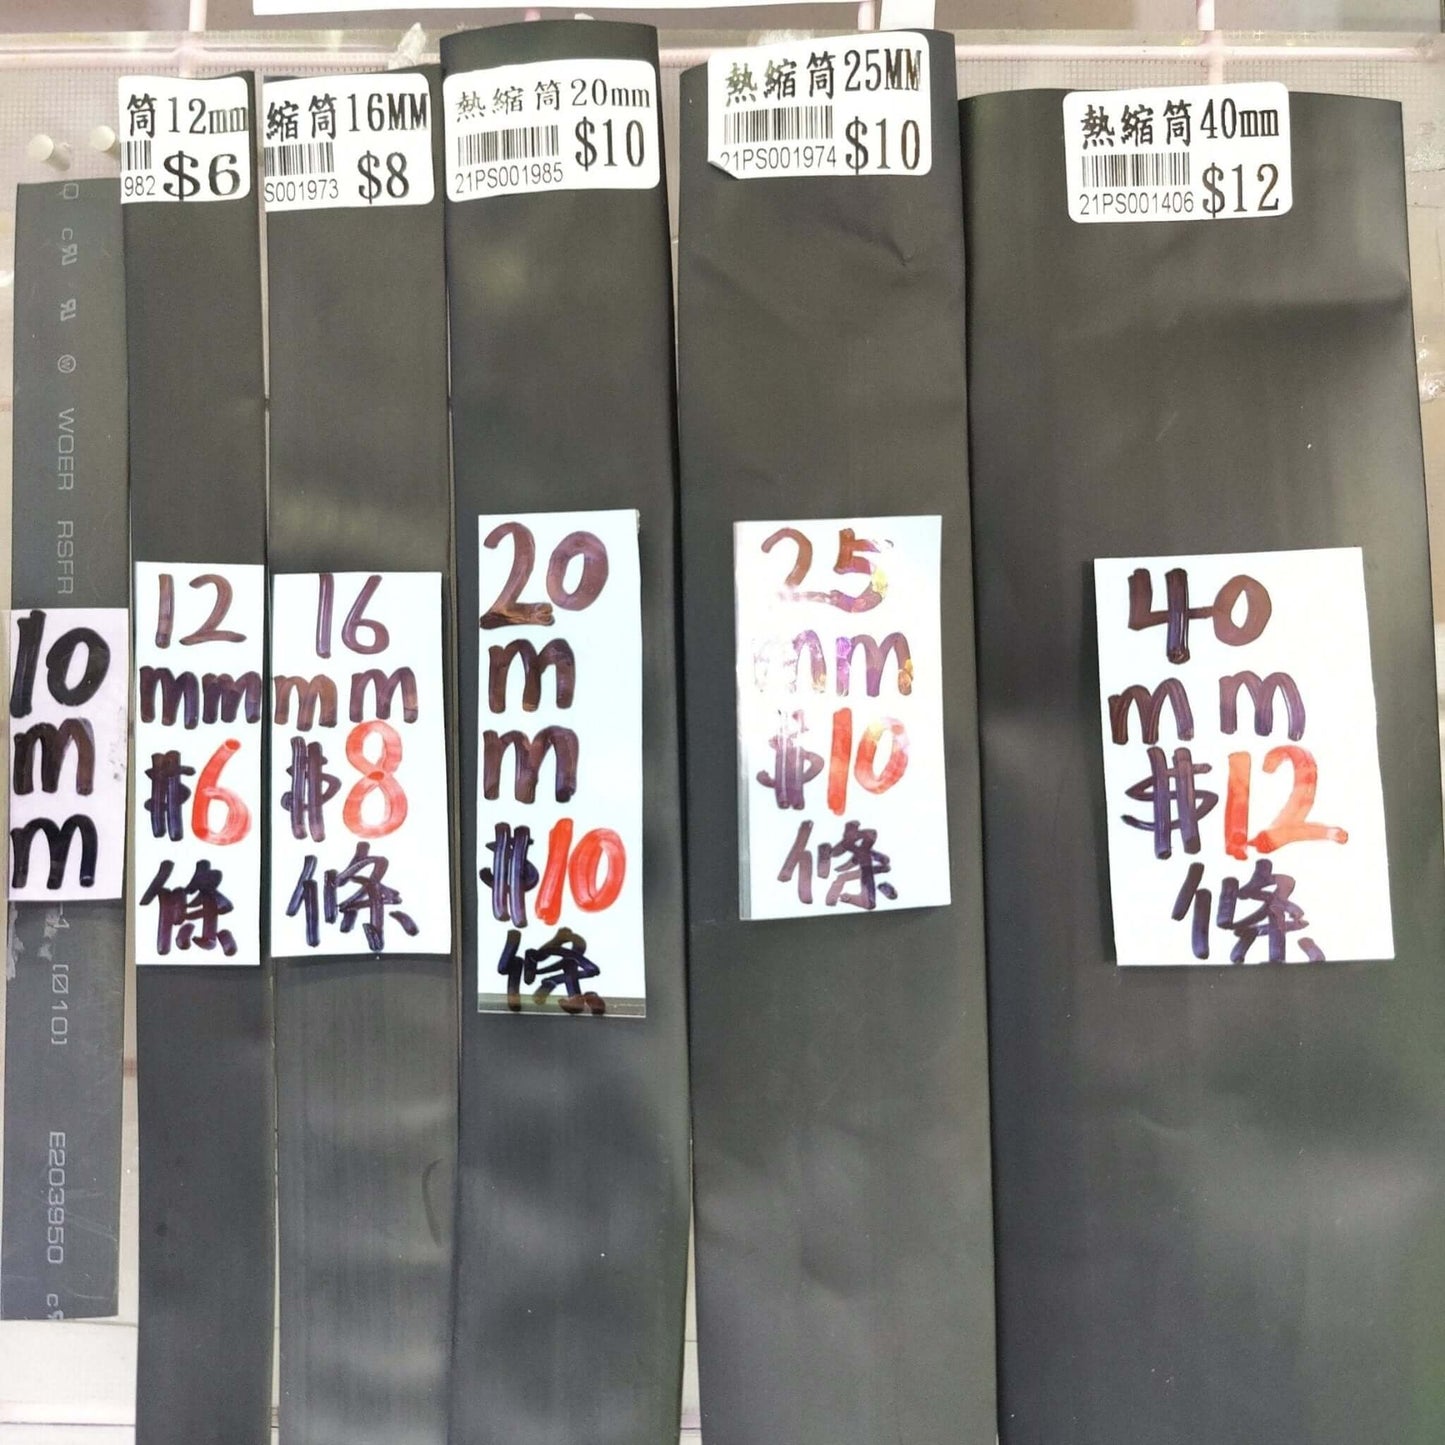 筒12mm
982 $6
縮筒16MM
S001973 $8
熱縮筒20mm
21PS001985 $10
熱縮筒25MM
21PS001974 $10
熱縮筒40mm
21PS001406 $12
WOER RSFR
[Ø10]
E203950
10
m
m
12
mm
$6
條
16
mm
$8
條
20
m
m
$10
條
25
mm
$10
條
40
mm
$12
條